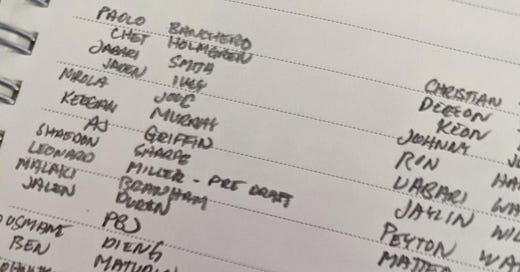 PAOLO BANCHERO
CHET HOLMGREN
JABARI SMITH
JADEN IVEY
NIKOLA JOVIC
KEEGAN MURRAY
AJ GRIFFIN
SHAEDON SHARPE
LEONARD MILLER - PRE DRAFT
MALAKI BRANHAM
JALEN DUREN
PBJ
OUSMANE DIENG
BEN
CHRISTIAN
DEREON
KEON
JOHNNY
RON
JABARI WA
JAYLIN WIL
PEYTON WA